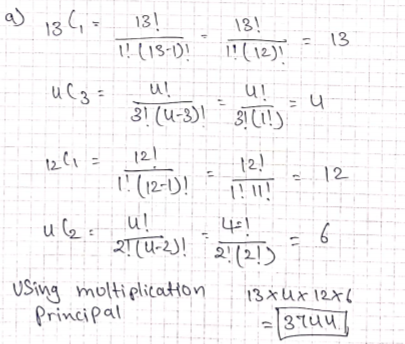 a) 13C1 = 13! / 1!(13-1)! = 13! / 1!(12)! = 13
4C3 = 4! / 3!(4-3)! = 4! / 3!(1!) = 4
12C1 = 12! / 1!(12-1)! = 12! / 1! 11! = 12
4C2 = 4! / 2!(4-2)! = 4! / 2!(2!) = 6
Using multiplication 13×4×12×6
principal = 3744